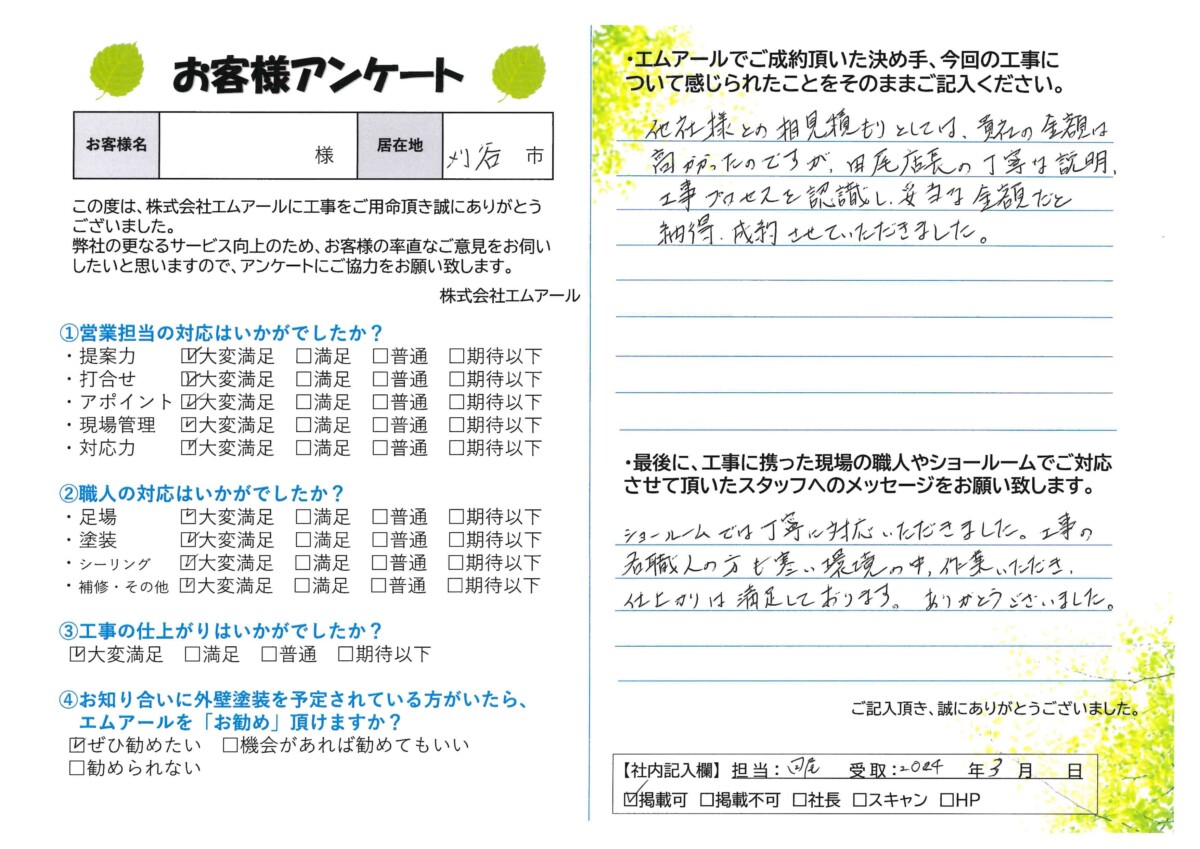 お客様アンケート
お客様名 様 居在地 刈谷 市
この度は、株式会社エムアールに工事をご用命頂き誠にありがとう
ございました。
弊社の更なるサービス向上のため、お客様の率直なご意見をお伺い
したいと思いますので、アンケートにご協力をお願い致します。
株式会社エムアール
①営業担当の対応はいかがでしたか？
・提案力 ☑大変満足 □満足 □普通 □期待以下
・打合せ ☑大変満足 □満足 □普通 □期待以下
・アポイント ☑大変満足 □満足 □普通 □期待以下
・現場管理 ☑大変満足 □満足 □普通 □期待以下
・対応力 ☑大変満足 □満足 □普通 □期待以下
②職人の対応はいかがでしたか？
・足場 ☑大変満足 □満足 □普通 □期待以下
・塗装 ☑大変満足 □満足 □普通 □期待以下
・シーリング ☑大変満足 □満足 □普通 □期待以下
・補修・その他 ☑大変満足 □満足 □普通 □期待以下
③工事の仕上がりはいかがでしたか？
☑大変満足 □満足 □普通 □期待以下
④お知り合いに外壁塗装を予定されている方がいたら、
エムアールを「お勧め」頂けますか？
☑ぜひ勧めたい □機会があれば勧めてもいい
□勧められない
・エムアールでご成約頂いた決め手、今回の工事に
ついて感じられたことをそのままご記入ください。
他社様との相見積もりとしては、貴社の金額は
高かったのですが、田尾店長の丁寧な説明、
工事プロセスを認識し、妥当な金額だと
納得、成約させていただきました。
・最後に、工事に携った現場の職人やショールームでご対応
させて頂いたスタッフへのメッセージをお願い致します。
ショールームでは丁寧に対応いただきました。工事の
各職人の方も寒い環境の中、作業いただき、
仕上がりは満足しております。ありがとうございました。
ご記入頂き、誠にありがとうございました。
【社内記入欄】 担当：田尾 受取：2024 年 3 月 日
☑掲載可 □掲載不可 □社長 □スキャン □HP